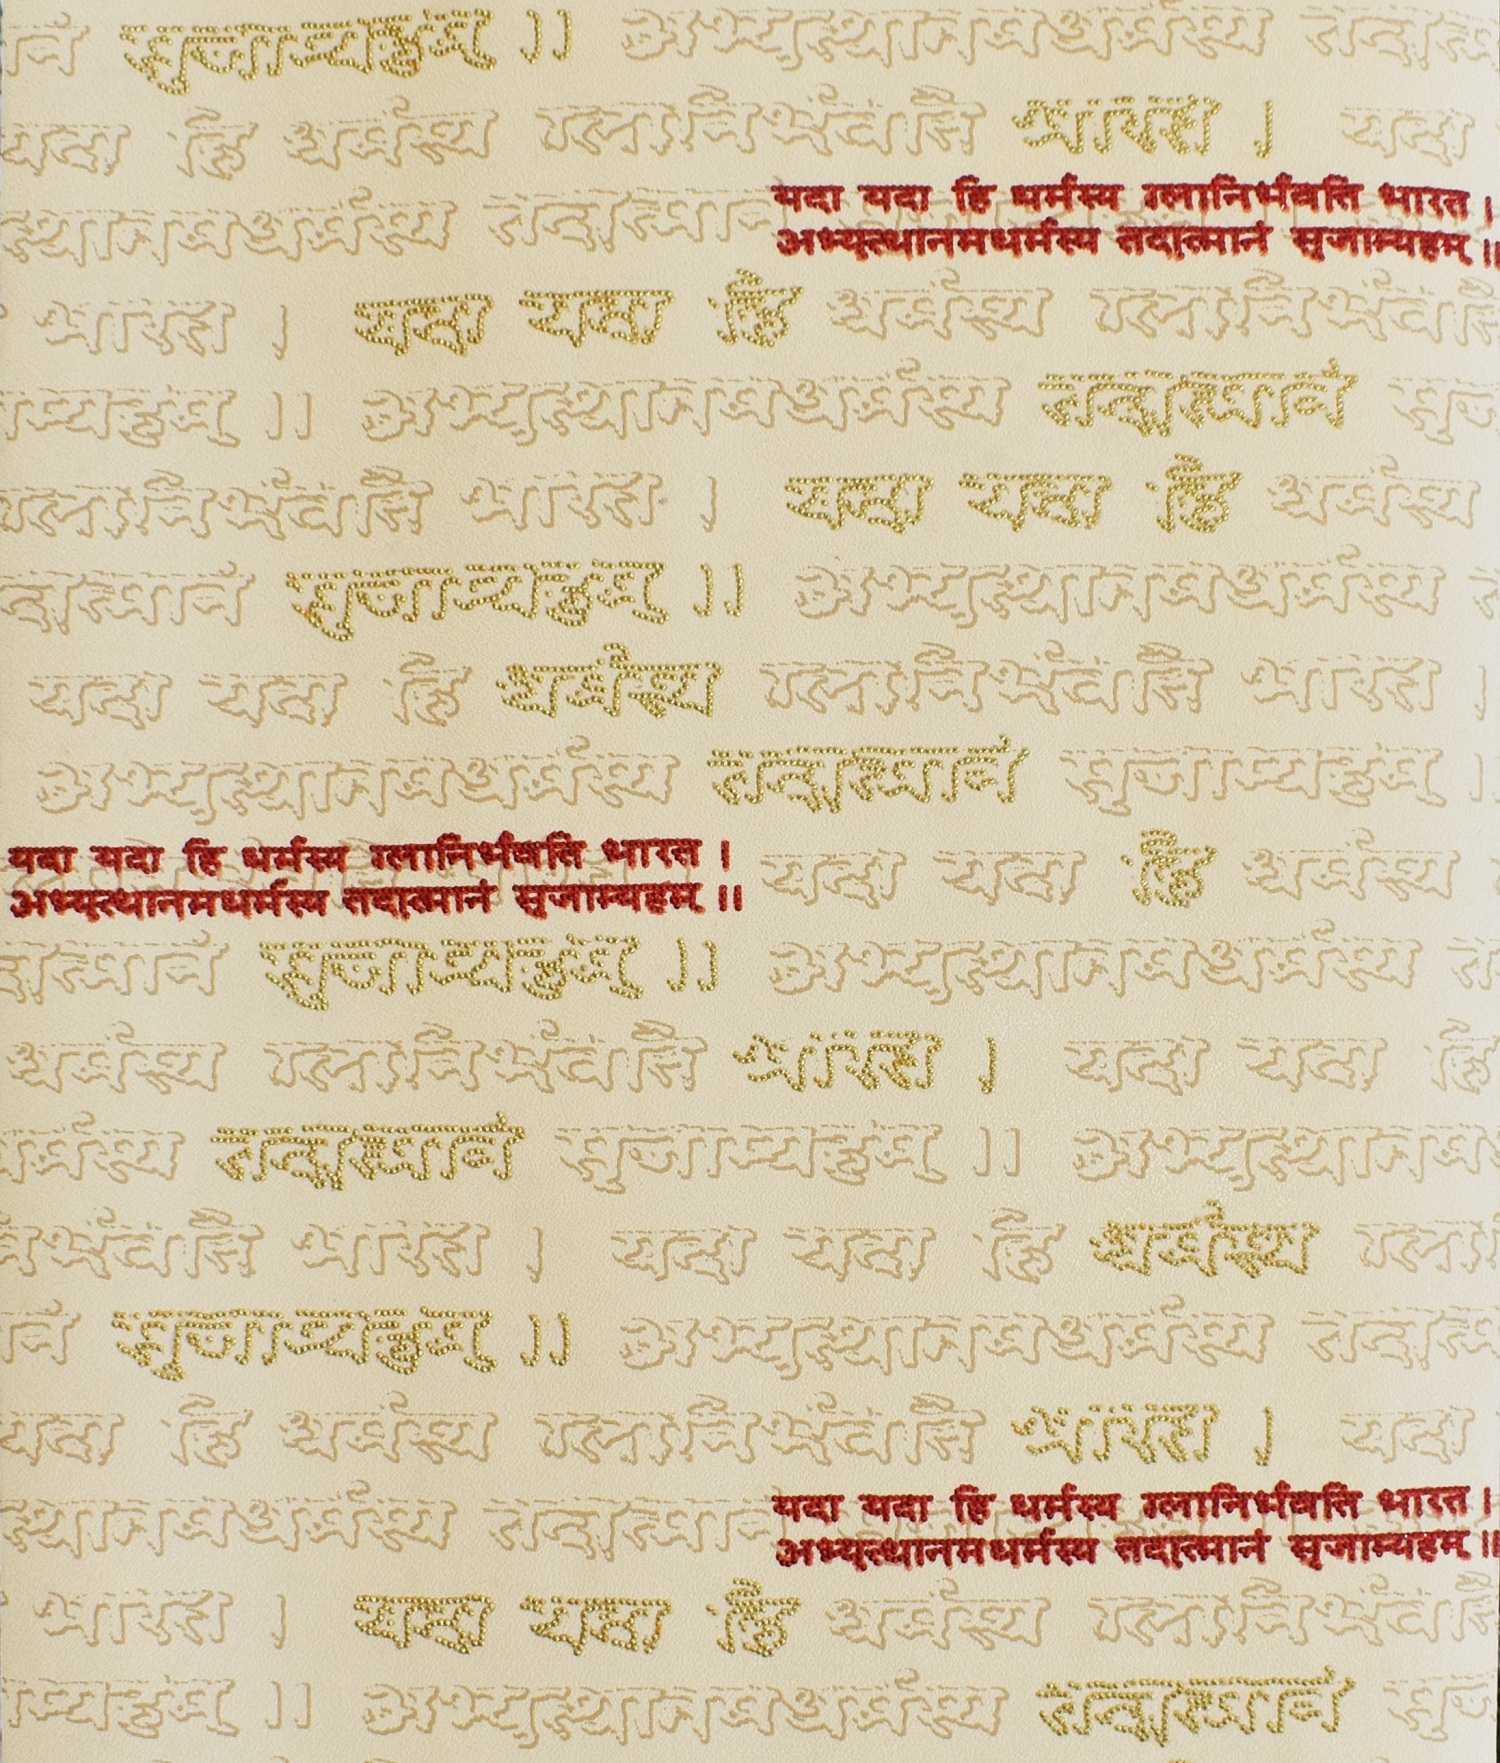 सृजाम्यहम् ।। अभ्युत्थानमधर्मस्य
यदा हि धर्मस्य ग्लानिर्भवति भारत । यदा
तदात्मानं
यदा यदा हि धर्मस्य ग्लानिर्भवति भारत ।
अभ्युत्थानमधर्मस्य तदात्मानं सृजाम्यहम् ।।
भारत । यदा यदा हि धर्मस्य ग्लानिर्भवति
।। अभ्युत्थानमधर्मस्य तदात्मानं
ग्लानिर्भवति भारत । यदा यदा हि धर्मस्य
सृजाम्यहम् ।। अभ्युत्थानमधर्मस्य
यदा यदा हि धर्मस्य ग्लानिर्भवति भारत ।
अभ्युत्थानमधर्मस्य तदात्मानं सृजाम्यहम् ।
यदा यदा हि धर्मस्य ग्लानिर्भवति भारत ।
अभ्युत्थानमधर्मस्य तदात्मानं सृजाम्यहम् ।।
यदा यदा हि धर्मस्य
सृजाम्यहम् ।। अभ्युत्थानमधर्मस्य
धर्मस्य ग्लानिर्भवति भारत । यदा यदा हि
तदात्मानं सृजाम्यहम् ।।
भारत । यदा यदा हि धर्मस्य
सृजाम्यहम् ।। अभ्युत्थानमधर्मस्य
यदा हि धर्मस्य ग्लानिर्भवति भारत । यदा
तदात्मानं
यदा यदा हि धर्मस्य ग्लानिर्भवति भारत ।
अभ्युत्थानमधर्मस्य तदात्मानं सृजाम्यहम् ।।
भारत । यदा यदा हि धर्मस्य ग्लानिर्भवति
।। अभ्युत्थानमधर्मस्य तदात्मानं